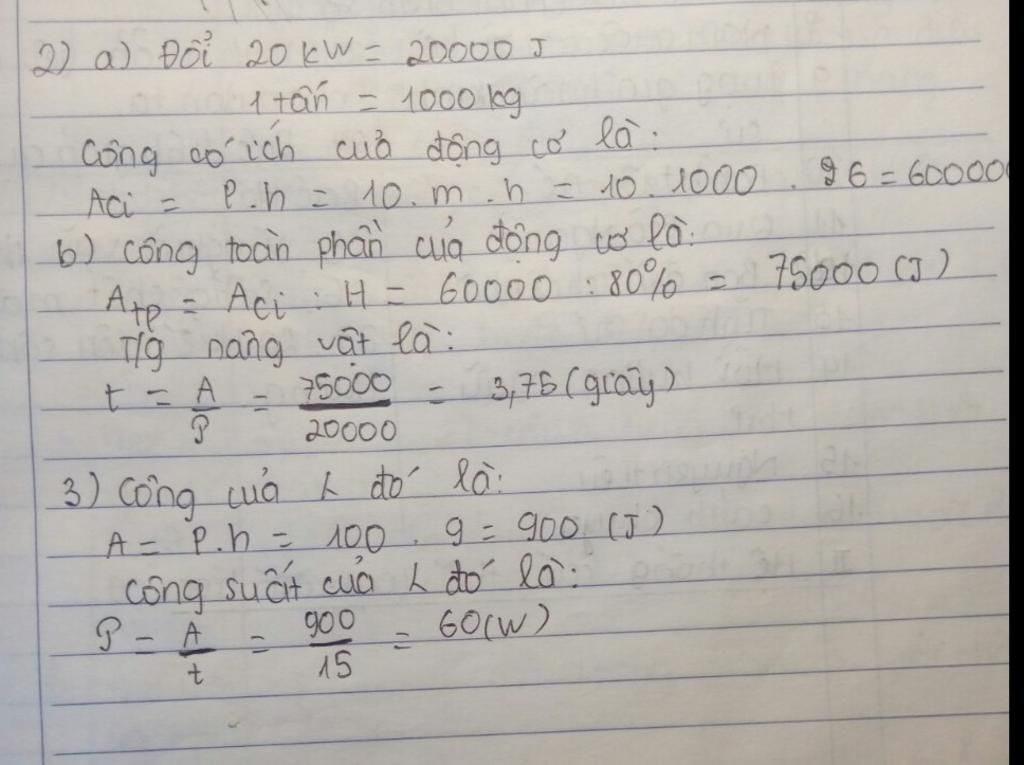 2) a) Đổi 20 kW = 20000 J
1 tấn = 1000 kg
Công có ích của động cơ là:
Aci = P.h = 10. m . h = 10. 1000 . 6 = 60000
b) Công toàn phần của động cơ là:
Atp = Aci : H = 60000 : 80% = 75000 (J)
T/g nâng vật là:
t = A/P = 75000/20000 = 3,75 (giây)
3) Công của L đó là:
A = P.h = 100 . 9 = 900 (J)
Công suất của L đó là:
P = A/t = 900/15 = 60 (W)